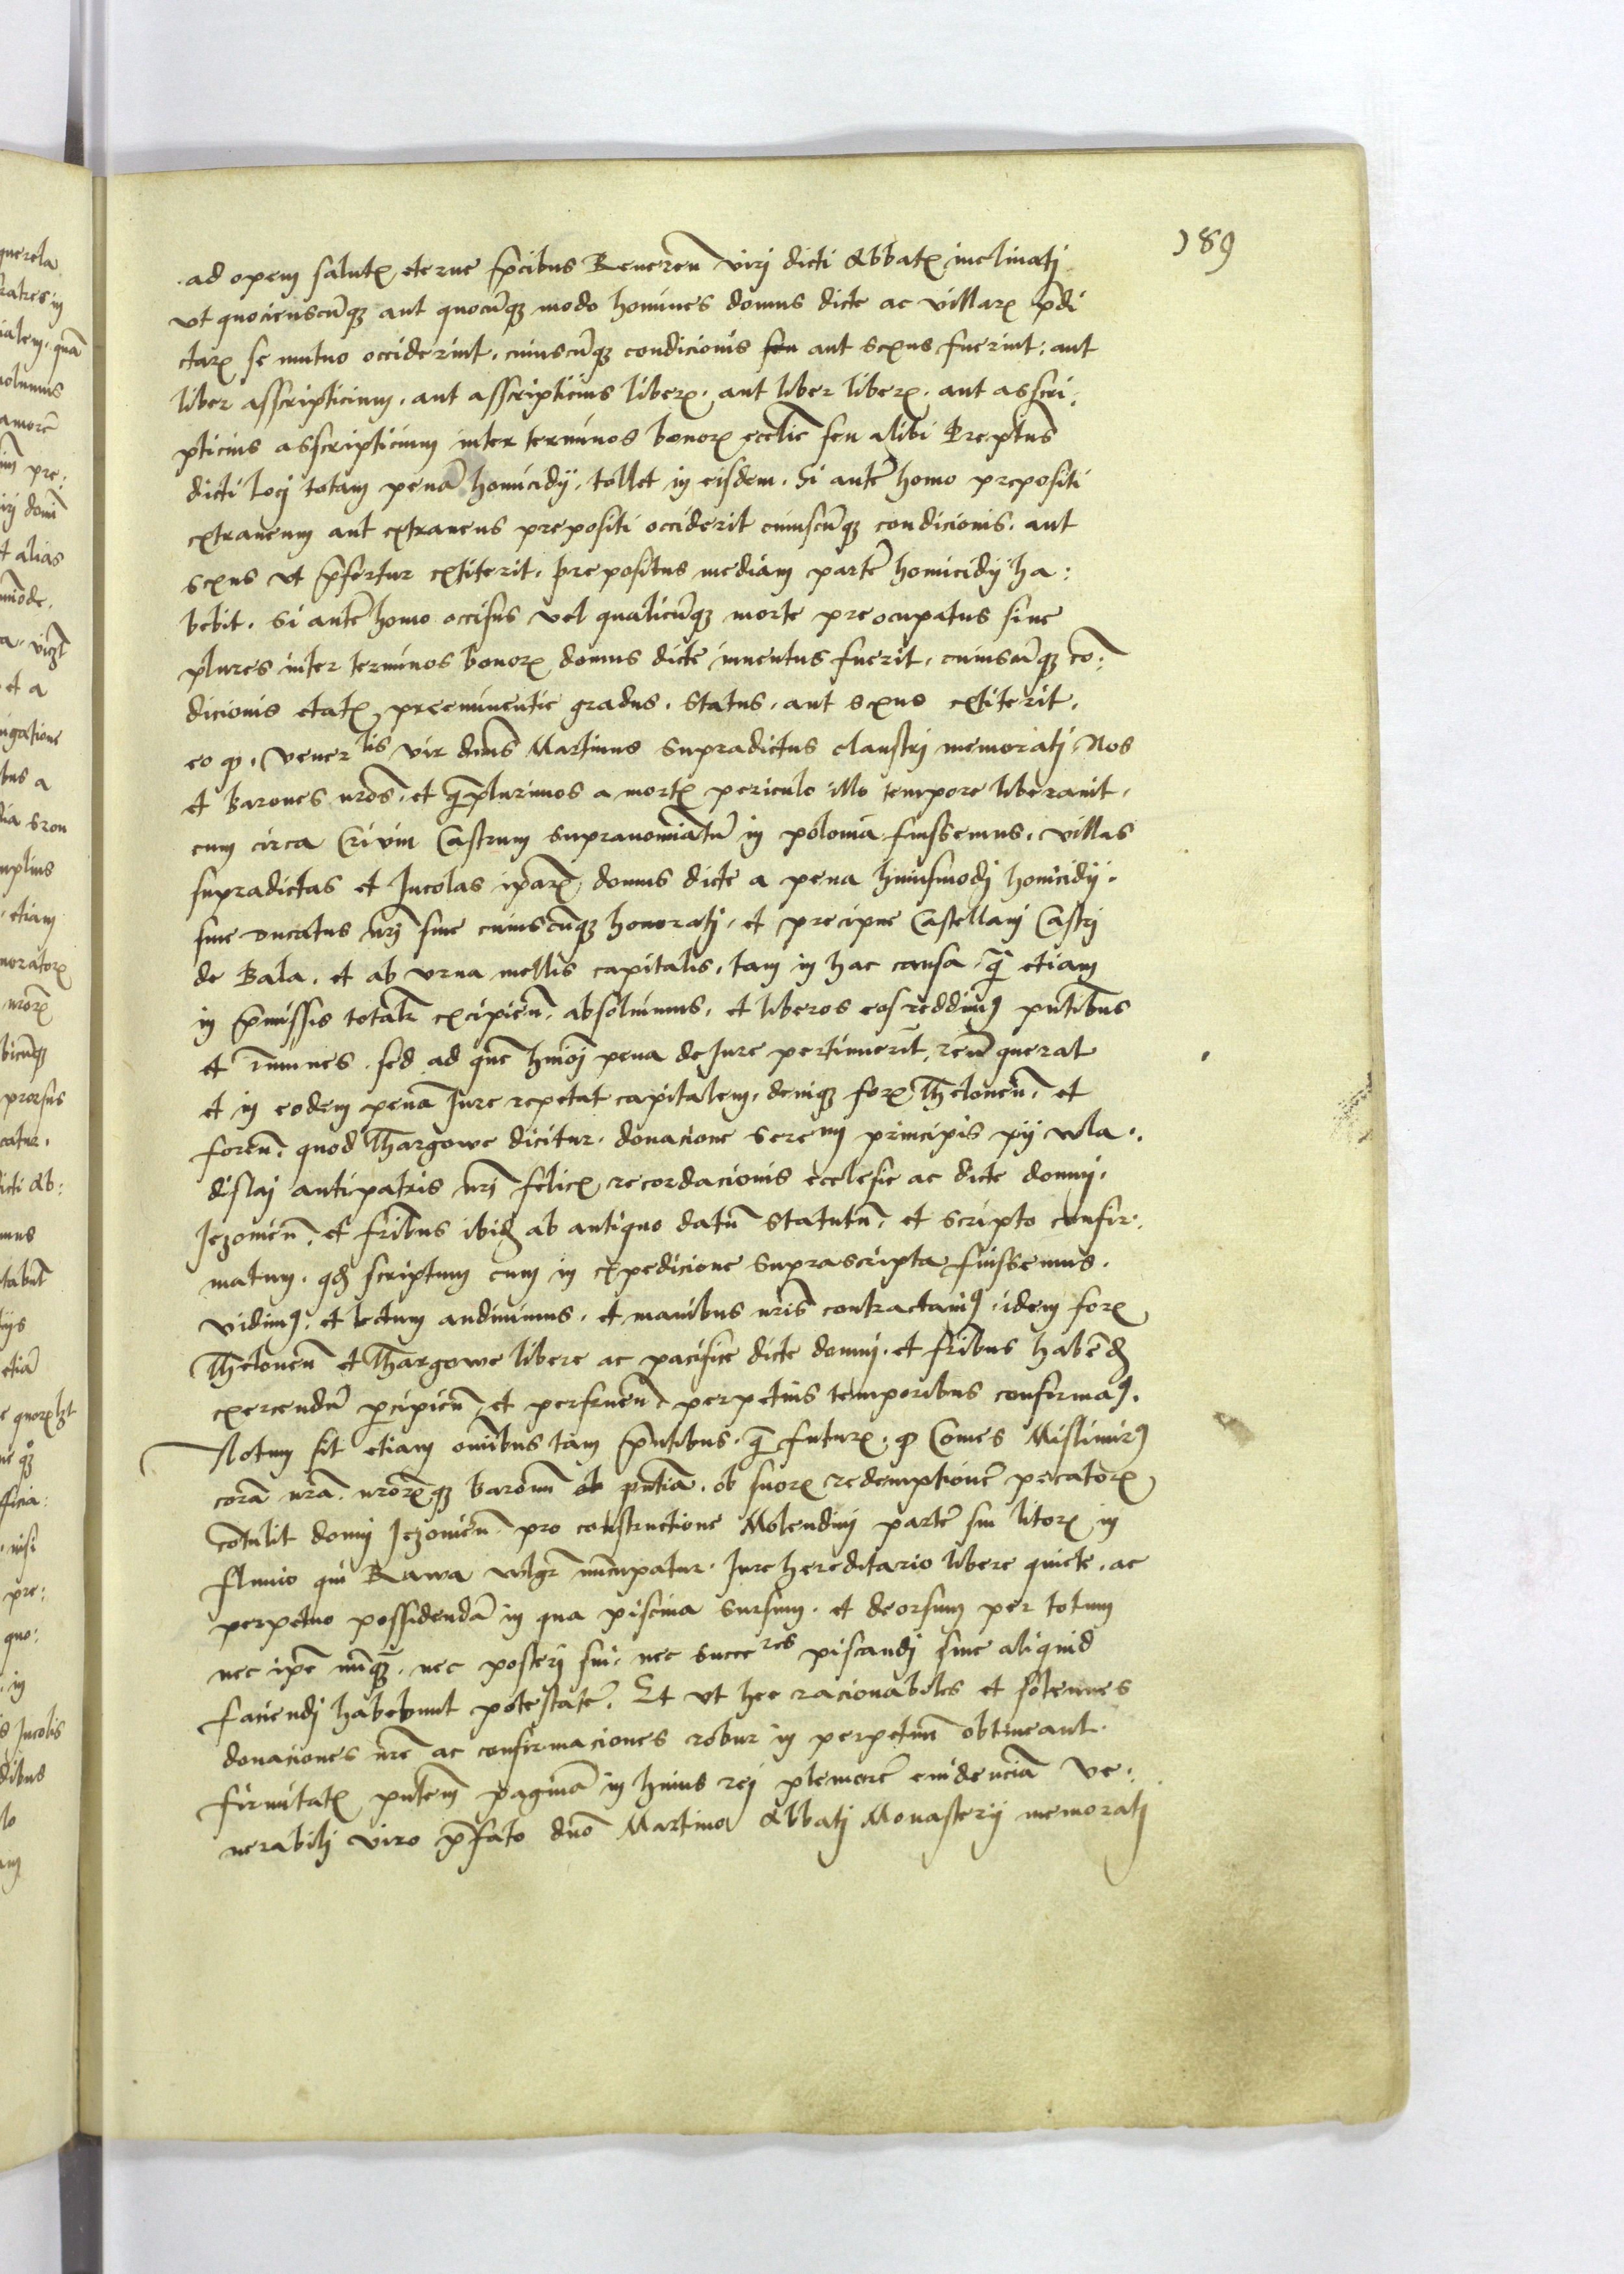 189
ad opem salutꝝ eterne p̄cibus Reueren̄ virj dicti Abbatꝝ inclinatj
vt quocienscūqꝫ aut quocūqꝫ modo homines domus dicte ac villarꝝ p̄di
ctarꝝ se mutuo occiderint, cuiuscūqꝫ condicionis seu aut sexus fuerint, aut
liber asscripticium, aut asscripticius liberꝝ, aut liber liberꝝ, aut asscri:
pticius asscripticium inter terminos bonorꝝ ecclīe seu alibi Preptūs
dicti locj totam penā homicidij, tollet in eisdem. Si autē homo prepositi
extraneum aut extraneus prepositi occiderit cuiuscūqꝫ condicionis, aut
sexus vt p̄fertur extiterit, prepositus mediam partē homicidij ha:
bebit. Si autē homo occisus vel qualicūqꝫ morte preocupatus siue
plures inter terminos bonorꝝ domus dicte inuentus fuerit, cuiuscūqꝫ co͞:
dicionis etatꝝ preeminentie gradus, status, aut sexus extiterit,
eo ꝙ, Venerlis vir dn̄us Martinus supradictus claustrj memoratj Nos
et barones nr̄os, et q̄plurimos a mortꝝ periculo illo tempore liberauit,
cum circa Crivin Castrum supranominatū in polonia fuissemus, villas
supradictas et Incolas ip̄arꝝ domus dicte a pena huiusmodj homicidij
siue ducatus nr̄j siue cuiuscūqꝫ honoratj, et precipue Castellanj Castrj
de Bala, et ab vrna mellis capitalis, tam in hac causa, q̄ etiam
in p̄missis totalr̄ excipien̄, absoluimus, et liberos eos reddimꝰ pn̄tibus
et im̄unes, sed ad quē hmōj pena de Iure pertinuerit, reū querat
et in eodem penā Iure repetat capitalem, deniqꝫ forꝝ Theloneū, et
foren̄, quod Thargowe dicitur, donacione serenj principis pij wla:
dislaj antipatris nr̄j felicꝝ recordacionis ecclesie ac dicte domuj,
Jezouien̄, et fr̄ibus ibidꝫ ab antiquo datū statutū, et scripto confir:
matum, qd̄ scriptum cum in expedicione suprascripta fuissemus,
vidimꝰ, et lectum audiuimus, et manibus nr̄is contractauimꝰ, idem forꝝ
Theloneū et Thargowe libere ac pacifice dicte domuj, et fr̄ibus habēdꝫ
exercendū p̄cipien̄, et perfruen̄ perpetuis temporibus confirmamꝰ.
Notum sit etiam om̄ibus tam p̄ntibus, q̄ futurꝝ, ꝙ Comes Mislimirꝰ
corā nr̄a, nr̄orꝝqꝫ baronū pn̄tia, ob suorꝝ redemptionē pecatorꝝ
cōtulit domuj Jezouien̄ pro constructione Molendinj partē sui litorꝝ in
fluuio qui Rawa wlgr̄ nūcupatur, Iure hereditario libere quiete, ac
perpetuo possidendā in qua piscina sursum, et deorsum per totum
nec ip̄e nūqꝫ, nec posterj sui, nec succeres piscandj siue aliquid
faciendj habebunt potestatē. Et vt hec racionabiles et solennes
donaciones nr̄e ac confirmaciones robur in perpetuū obtineant
firmitatꝝ pn̄tem paginā in huius rej pleniorē euidenciā Ve:
nerabilj viro p̄fato dn̄o Martino Abbatj Monasterij memoratj